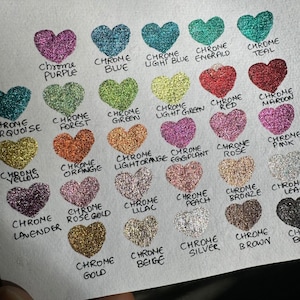 Chrome PURPLE
CHROME BLUE
CHROME LIGHT BLUE
CHROME EMERALD
CHROME TEAL
CHROME
CHROME FOREST
CHROME GREEN
CHROME LIGHT GREEN
CHROME RED
CHROME MAROON
CHROME
CHROME ORANGE
CHROME LIGHT ORANGE
CHROME EGGPLANT
CHROME ROSE
CHROME PINK
CHROME LAVENDER
CHROME ROSE GOLD
CHROME LILAC
CHROME PEACH
CHROME BRONZE
CHROME GOLD
CHROME BEIGE
CHROME SILVER
CHROME BROWN